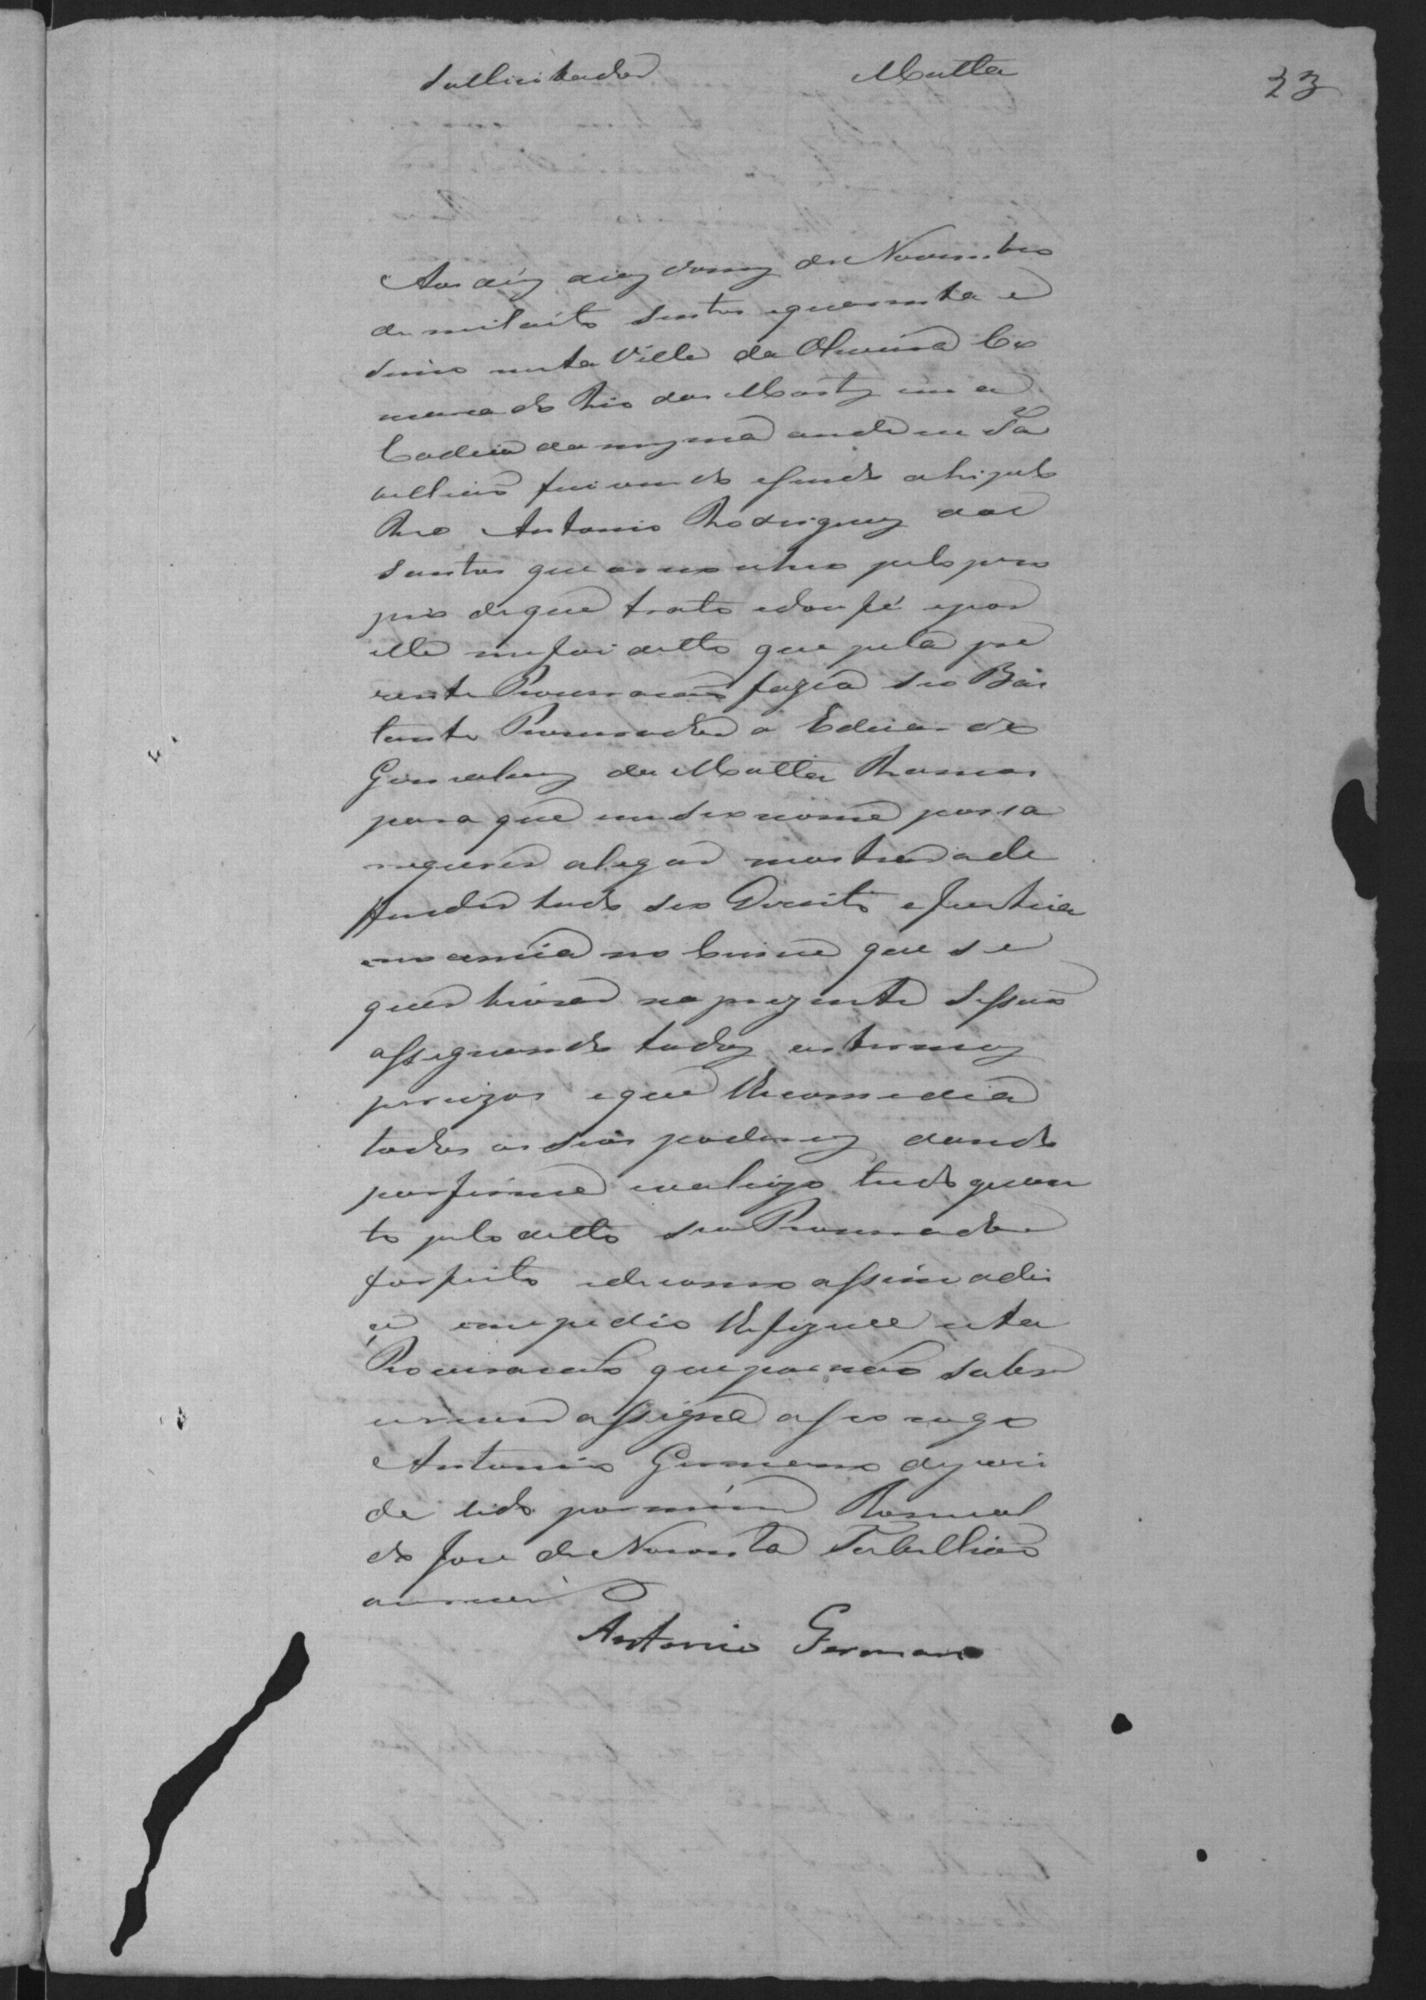 Sollicitador Matta 23
Aos déz diaz do mez de Novembro
de mil oito sentos e quarenta e
sinco nesta Villa da Oliveira Co
marca do Rio das Mortes em a
Cadeia da mesma onde eu Ta
bellião fui vindo e sendo ahi pelo
Reo Antonio Rodriguez dos
Santos que reconheco pelo pro
prio de que trato e dou fé e por
elle me foi ditto que pela pre
zente Procuracão fazia seo Bas
tante Procurador a Eduardo
Gonsalvez da Matta Ramos
para que em seo nome possa
requerer alegar mostrar a de
ffender todo seo Direito e Justiça
no crime que se
quer na prezente Sessão
assignando todoz os termoz
percizos e que lhe comcedia
todos os seos poderez dando
por firme e valiozo tudo quan
to pelo ditto seo Procurador
for feito e de como assim o dis
ce e me pedio lhe fizece esta
Procuracão que por não saber
escrever assigna a seo rogo
Antonio Germano depois
de lido por mim Romual
do Jose de Noronha Tabellião
o escrevi
Antonio Germano